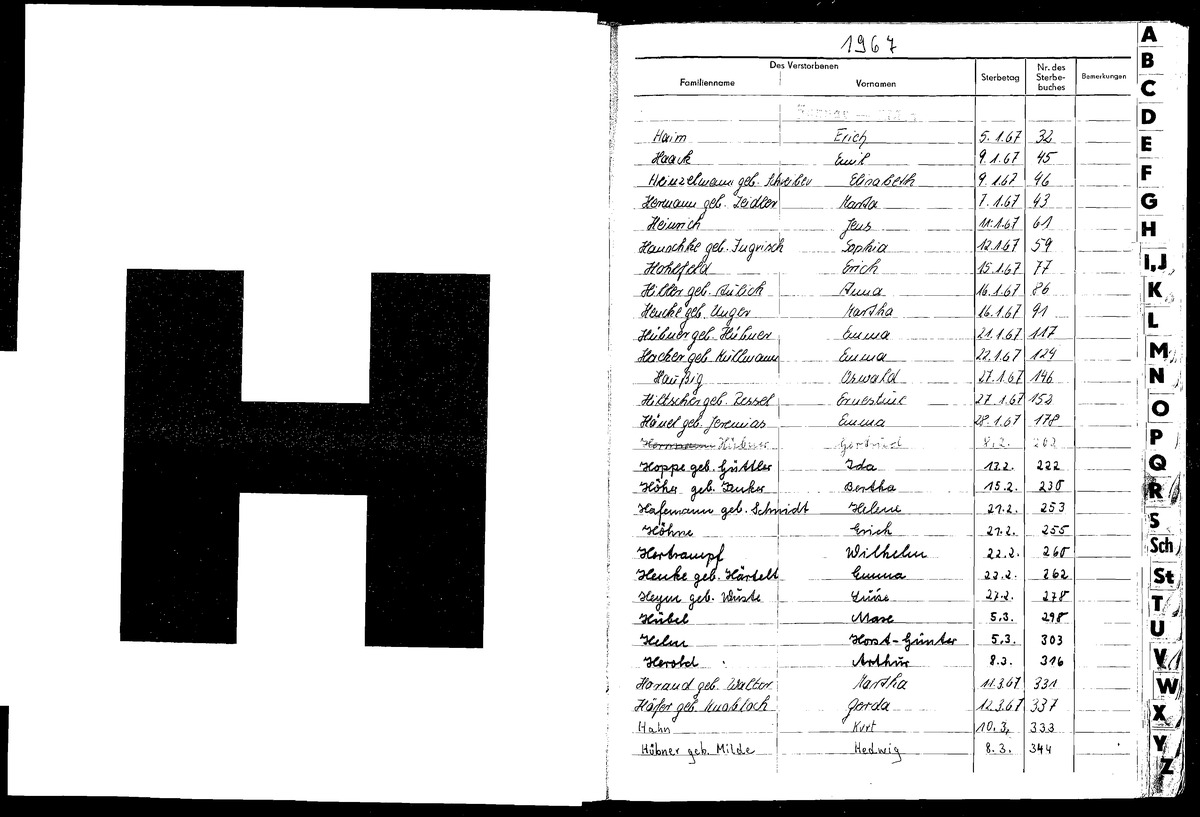 H
1967
Des Verstorbenen
Familienname Vornamen Sterbetag Nr. des Sterbe-buches Bemerkungen
Haim Erich 5.1.67 32
Haack Emil 9.1.67 45
Heinzelmann geb. Schreiber Elisabeth 9.1.67 46
Hermann geb. Zeidler Marta 7.1.67 43
Heinrich Jens 11.1.67 61
Hauschke geb. Sophia 12.1.67 59
Hohlfeld Erich 15.1.67 77
Hiller geb. Anna 16.1.67 86
Hencke geb. Unger Martha 16.1.67 91
Hübner geb. Hübner Emma 21.1.67 117
Hacker geb. Küllmann Emma 22.1.67 124
Haußig Oswald 27.1.67 146
Hiltscher geb. Ressel Ernestine 27.1.67 152
Hänel geb. Jeremias Emma 28.1.67 178
Hermann Hübner Gertrud 8.2. 202
Hoppe geb. Güttler Ida 13.2. 222
Höher geb. Bertha 15.2. 230
Hafemann geb. Schmidt Helene 21.2. 253
Höhne Erich 21.2. 255
Hertrampf Wilhelm 22.2. 260
Henke geb. Härtelt Emma 22.2. 262
Heym geb. Wüste Luise 27.2. 278
Hübel Max 5.3. 298
Helm Horst-Günter 5.3. 303
Herold Arthur 8.3. 316
Harand geb. Walter Martha 11.3.67 331
Häfer geb. Knobloch Gerda 12.3.67 337
Hahn Kurt 10.3. 333
Hübner geb. Milde Hedwig 8.3. 344
A
B
C
D
E
F
G
H
I,J
K
L
M
N
O
P
Q
R
S
Sch
St
T
U
V
W
X
Y
Z